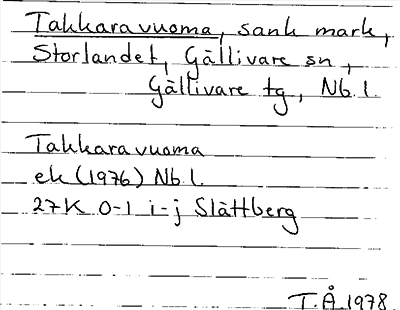 Takkaravuoma, sank mark,
Storlandet, Gällivare sn,
Gällivare tg, Nb. l.
Takkaravuoma
ek (1976) Nb l.
27K 0-1 i-j Slättberg
T.Å. 1978